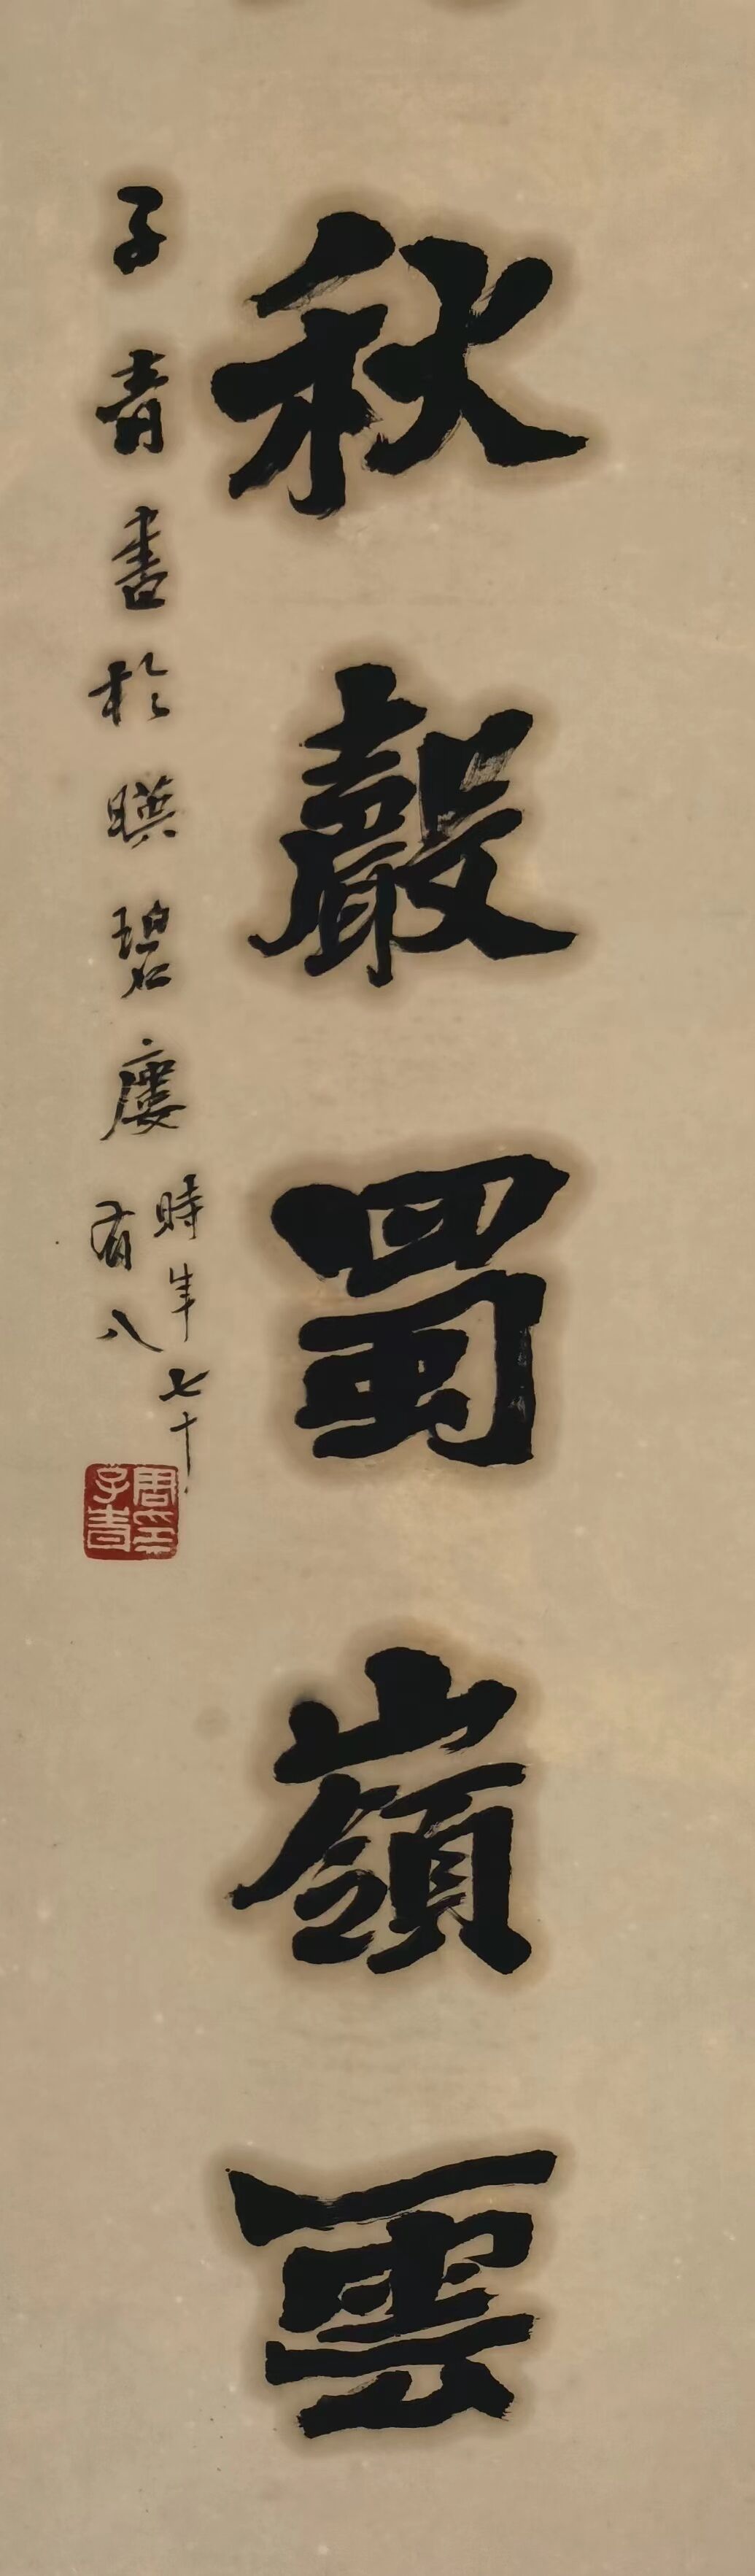 秋聲蜀嶺雲
子青書於暎碧廔
時年七十
有八
周印
子青